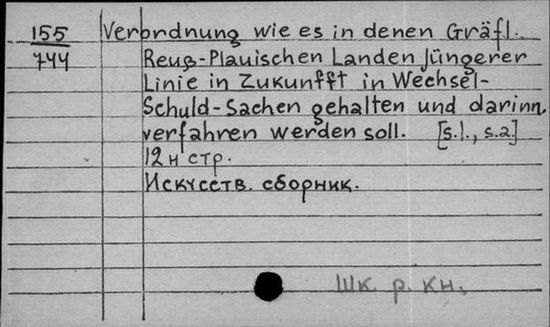 155
744
Verordnung wie es in denen Gräfl.
Reuß-Plauischen Landen Jüngerer
Linie in Zukunfft in Wechsel-
Schuld-Sachen gehalten und darinn
verfahren werden soll. [s.l., s.a.]
12 н стр.
Искусств. сборник.
Шк. р. кн.